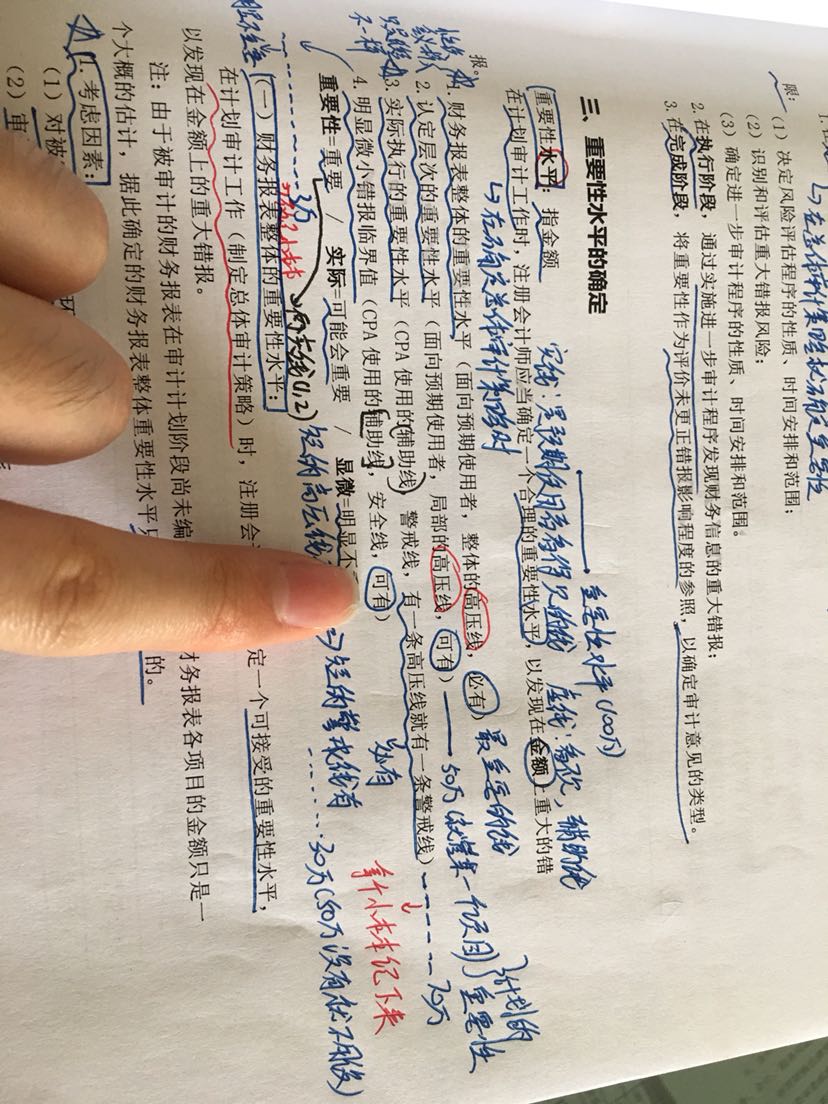 限：
（1）决定风险评估程序的性质、时间安排和范围；
（2）识别和评估重大错报风险；
（3）确定进一步审计程序的性质、时间安排和范围。
2. 在执行阶段，通过实施进一步审计程序发现财务信息的重大错报；
3. 在完成阶段，将重要性作为评价未更正错报影响程度的参照，以确定审计意见的类型。
三、重要性水平的确定
重要性水平(100万)
重要性水平：指金额
实线：是预期使用者看得见的线
虚线：喜欢，辅助线
在计划审计工作时，注册会计师应当确定一个合理的重要性水平，以发现在金额上重大的错
报。
↳在确定总体审计策略时
1. 财务报表整体的重要性水平（面向预期使用者，整体的高压线，必有）最重要的线
2. 认定层次的重要性水平（面向预期使用者，局部的高压线，可有）
50万（注 一个项目）重要性
计划的
3. 实际执行的重要性水平（CPA 使用的辅助线，警戒线，有一条高压线就有一条警戒线）
70万
必有
4. 明显微小错报临界值（CPA 使用的辅助线，安全线，可有）
拿个小本本记下来
重要性=重要 / 实际=可能会重要 / 显微=明显不
短的警戒线有
30万(50万没有就不用设)
3万
两实线(1,2)
短的高压线
（一）财务报表整体的重要性水平：
在计划审计工作（制定总体审计策略）时，注册会
定一个可接受的重要性水平，
以发现在金额上的重大错报。
注：由于被审计的财务报表在审计计划阶段尚未编
财务报表各项目的金额只是一
个大概的估计，据此确定的财务报表整体重要性水平只
的。
1. 考虑因素：
（1）对被
（2）审